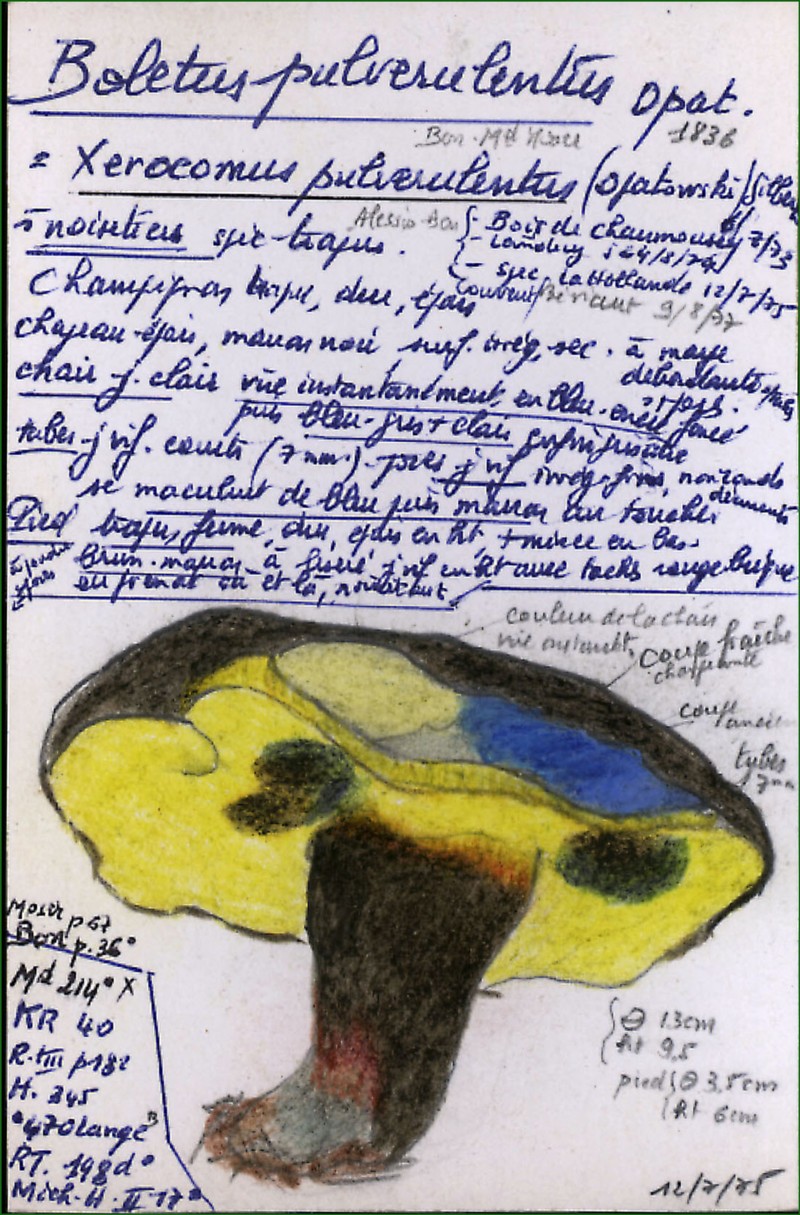 Boletus pulverulentus Opat.
1836
Bon. Md
= Xerocomus pulverulentus (Opatowski)
Alessio-Bon
à noisetiers spc trapus.
- Bois de Chaumousey 7/73
- 4/8/74
- spc. la Hollande 12/7/75
9/8/77
Champignon trapu, dur, épais
chapeau épais, marron noir surf. irrég, sec. à marge
débordante
chair j. clair vire instantanément en bleu-encre foncé
puis bleu-gris + clair enfin jusâtre
tubes j vif. courts (7 mm.) - pores j vif irrég fins, non ronds
se maculent de bleu puis marron au toucher
Pied trapu, ferme, dur, épais en ht, + mince en bas.
brun-marron à j vif en ht avec tache rouge brique
ou grenat ça et là, noircissant
couleur de la chair
vire instantt.
coupe fraîche
coupe
tubes
7 mm
Moser p 67
Bon p. 36°
Md 214° X
KR 40
R. tIII p182
H. 345
°470 Lange
RT. 198d°
Mich-H. II 17°
Θ 13cm
ht 9,5
pied Θ 3,5cm
ht 6cm
12/7/75